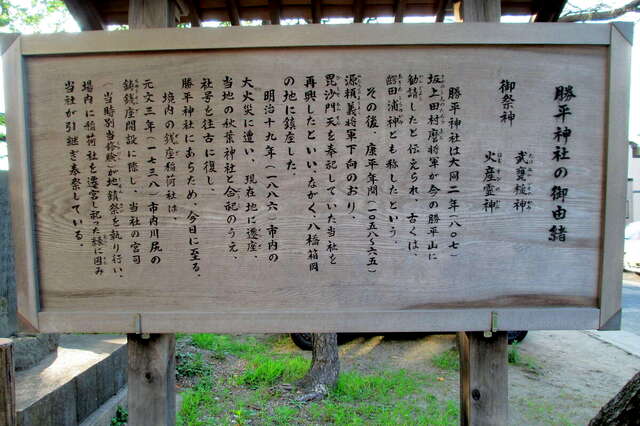 勝平神社の御由緒
御祭神
武甕槌神
火産霊神
勝平神社は大同二年(八〇七)
坂上田村麿将軍が今の勝平山に
勧請したと伝えられ、古くは、
浦神とも称したという。
その後、康平年間(一〇五八~六五)
源頼義将軍下向のおり、
毘沙門天を奉記していた当社を
再興したといい、ながく、八橋箱岡
の地に鎮座した。
明治十九年(一八八六)市内の
大火災に遭い、現在地に遷座、
当地の秋葉神社と合記のうえ、
社号を往古に復し、
勝平神社にあらため、今日に至る。
境内の銭座稲荷社は、
元文三年(一七三八)市内川尻の
鋳銭座開設に際し、当社の宮司
(当時別当修験)が地鎮祭を執り行い、
場内に稲荷社を遷宮し祀った縁に因み
当社が引継ぎ奉祭している。